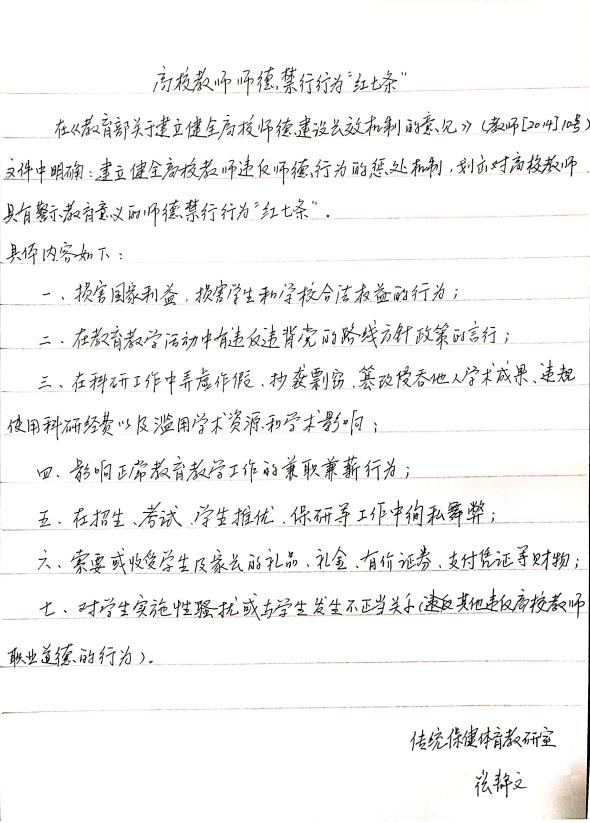 高校教师师德禁行行为“红七条”
在《教育部关于建立健全高校师德建设长效机制的意见》(教师[2014]10号)
文件中明确：建立健全高校教师违反师德行为的惩处机制，划出对高校教师
具有警示教育意义的师德禁行行为“红七条”.
具体内容如下：
一、损害国家利益，损害学生和学校合法权益的行为；
二、在教育教学活动中有违反违背党的路线方针政策的言行；
三、在科研工作中弄虚作假、抄袭剽窃、篡改侵吞他人学术成果、违规
使用科研经费以及滥用学术资源和学术影响；
四、影响正常教育教学工作的兼职兼薪行为；
五、在招生、考试、学生推优、保研等工作中徇私舞弊；
六、索要或收受学生及家长的礼品、礼金、有价证券、支付凭证等财物；
七、对学生实施性骚扰或与学生发生不正当关系(违反其他违反高校教师
职业道德的行为)。
传统保健体育教研室
张静文